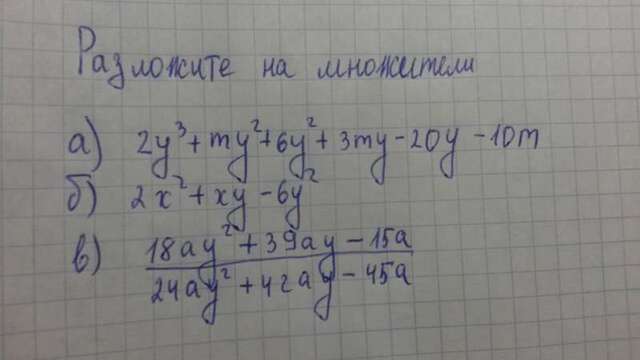 Разложите на множители
а) 2y³ + my² + 6y² + 3my - 20y - 10m
б) 2x² + xy - 6y²
в) 18ay² + 39ay - 15a
24ay² + 42ay - 45a